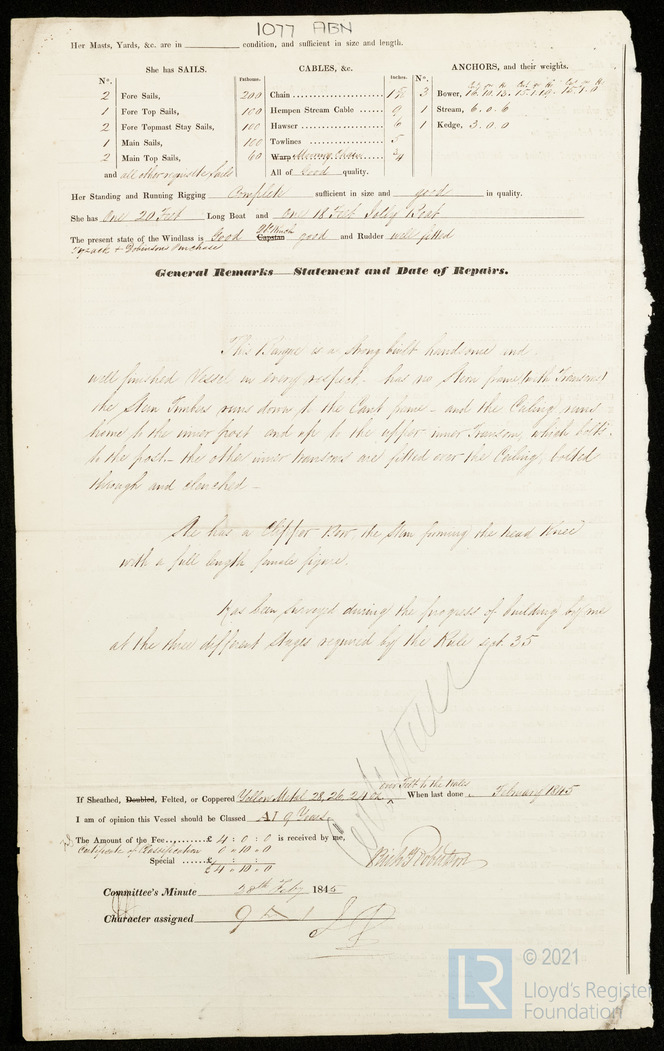 1077 ABN
Her Masts, Yards, &c. are in condition, and sufficient in size and length.
She has SAILS.
CABLES, &c.
ANCHORS, and their weights.
N°.
Fathoms.
Inches.
N°.
2 Fore Sails, 200 Chain
3 Bower,
1 Fore Top Sails, 100 Hempen Stream Cable 9
1 Stream, 6.0.6
2 Fore Topmast Stay Sails, 100 Hawser 6
1 Kedge, 3.0.0
1 Main Sails, 100 Towlines 5
2 Main Top Sails, 60 Warp
and all other requisite Sails
All of Good quality.
Her Standing and Running Rigging Complete sufficient in size and good in quality.
She has One 20 Feet Long Boat and One 18 Feet Jolly Boat
The present state of the Windlass is Good Capstan Winch good and Rudder well fitted
Tyzack & Dobinsons Purchase
General Remarks Statement and Date of Repairs.
This Barque is a strong built handsome and
well finished Vessel in every respect. has no Stern frame (with Transoms)
the Stern Timbers runs down to the Cant frame - and the Ceiling runs
home to the inner post and up to the upper inner Transom, which bolts
to the post - the other inner transoms are fitted over the Ceiling, bolted
through and clenched -
She has a Clipper Bow, the Stem forming the head Knee
with a full length female figure.
Has been surveyed during the progress of building by me
at the three different stages required by the Rule sect. 35
over Felt to the Wales
If Sheathed, Doubled, Felted, or Coppered Yellow Metal 28, 26, 24 oz When last done February 1845
I am of opinion this Vessel should be Classed A1 9 Years
The Amount of the Fee £ 4 : 0 : 0 is received by me,
Certificate of Classification 0 : 10 : 0
Special £ : :
£4 : 10 : 0
Committee's Minute 28th Feby 1845
Character assigned 9 A 1
LR
© 2021
Lloyd's Register
Foundation